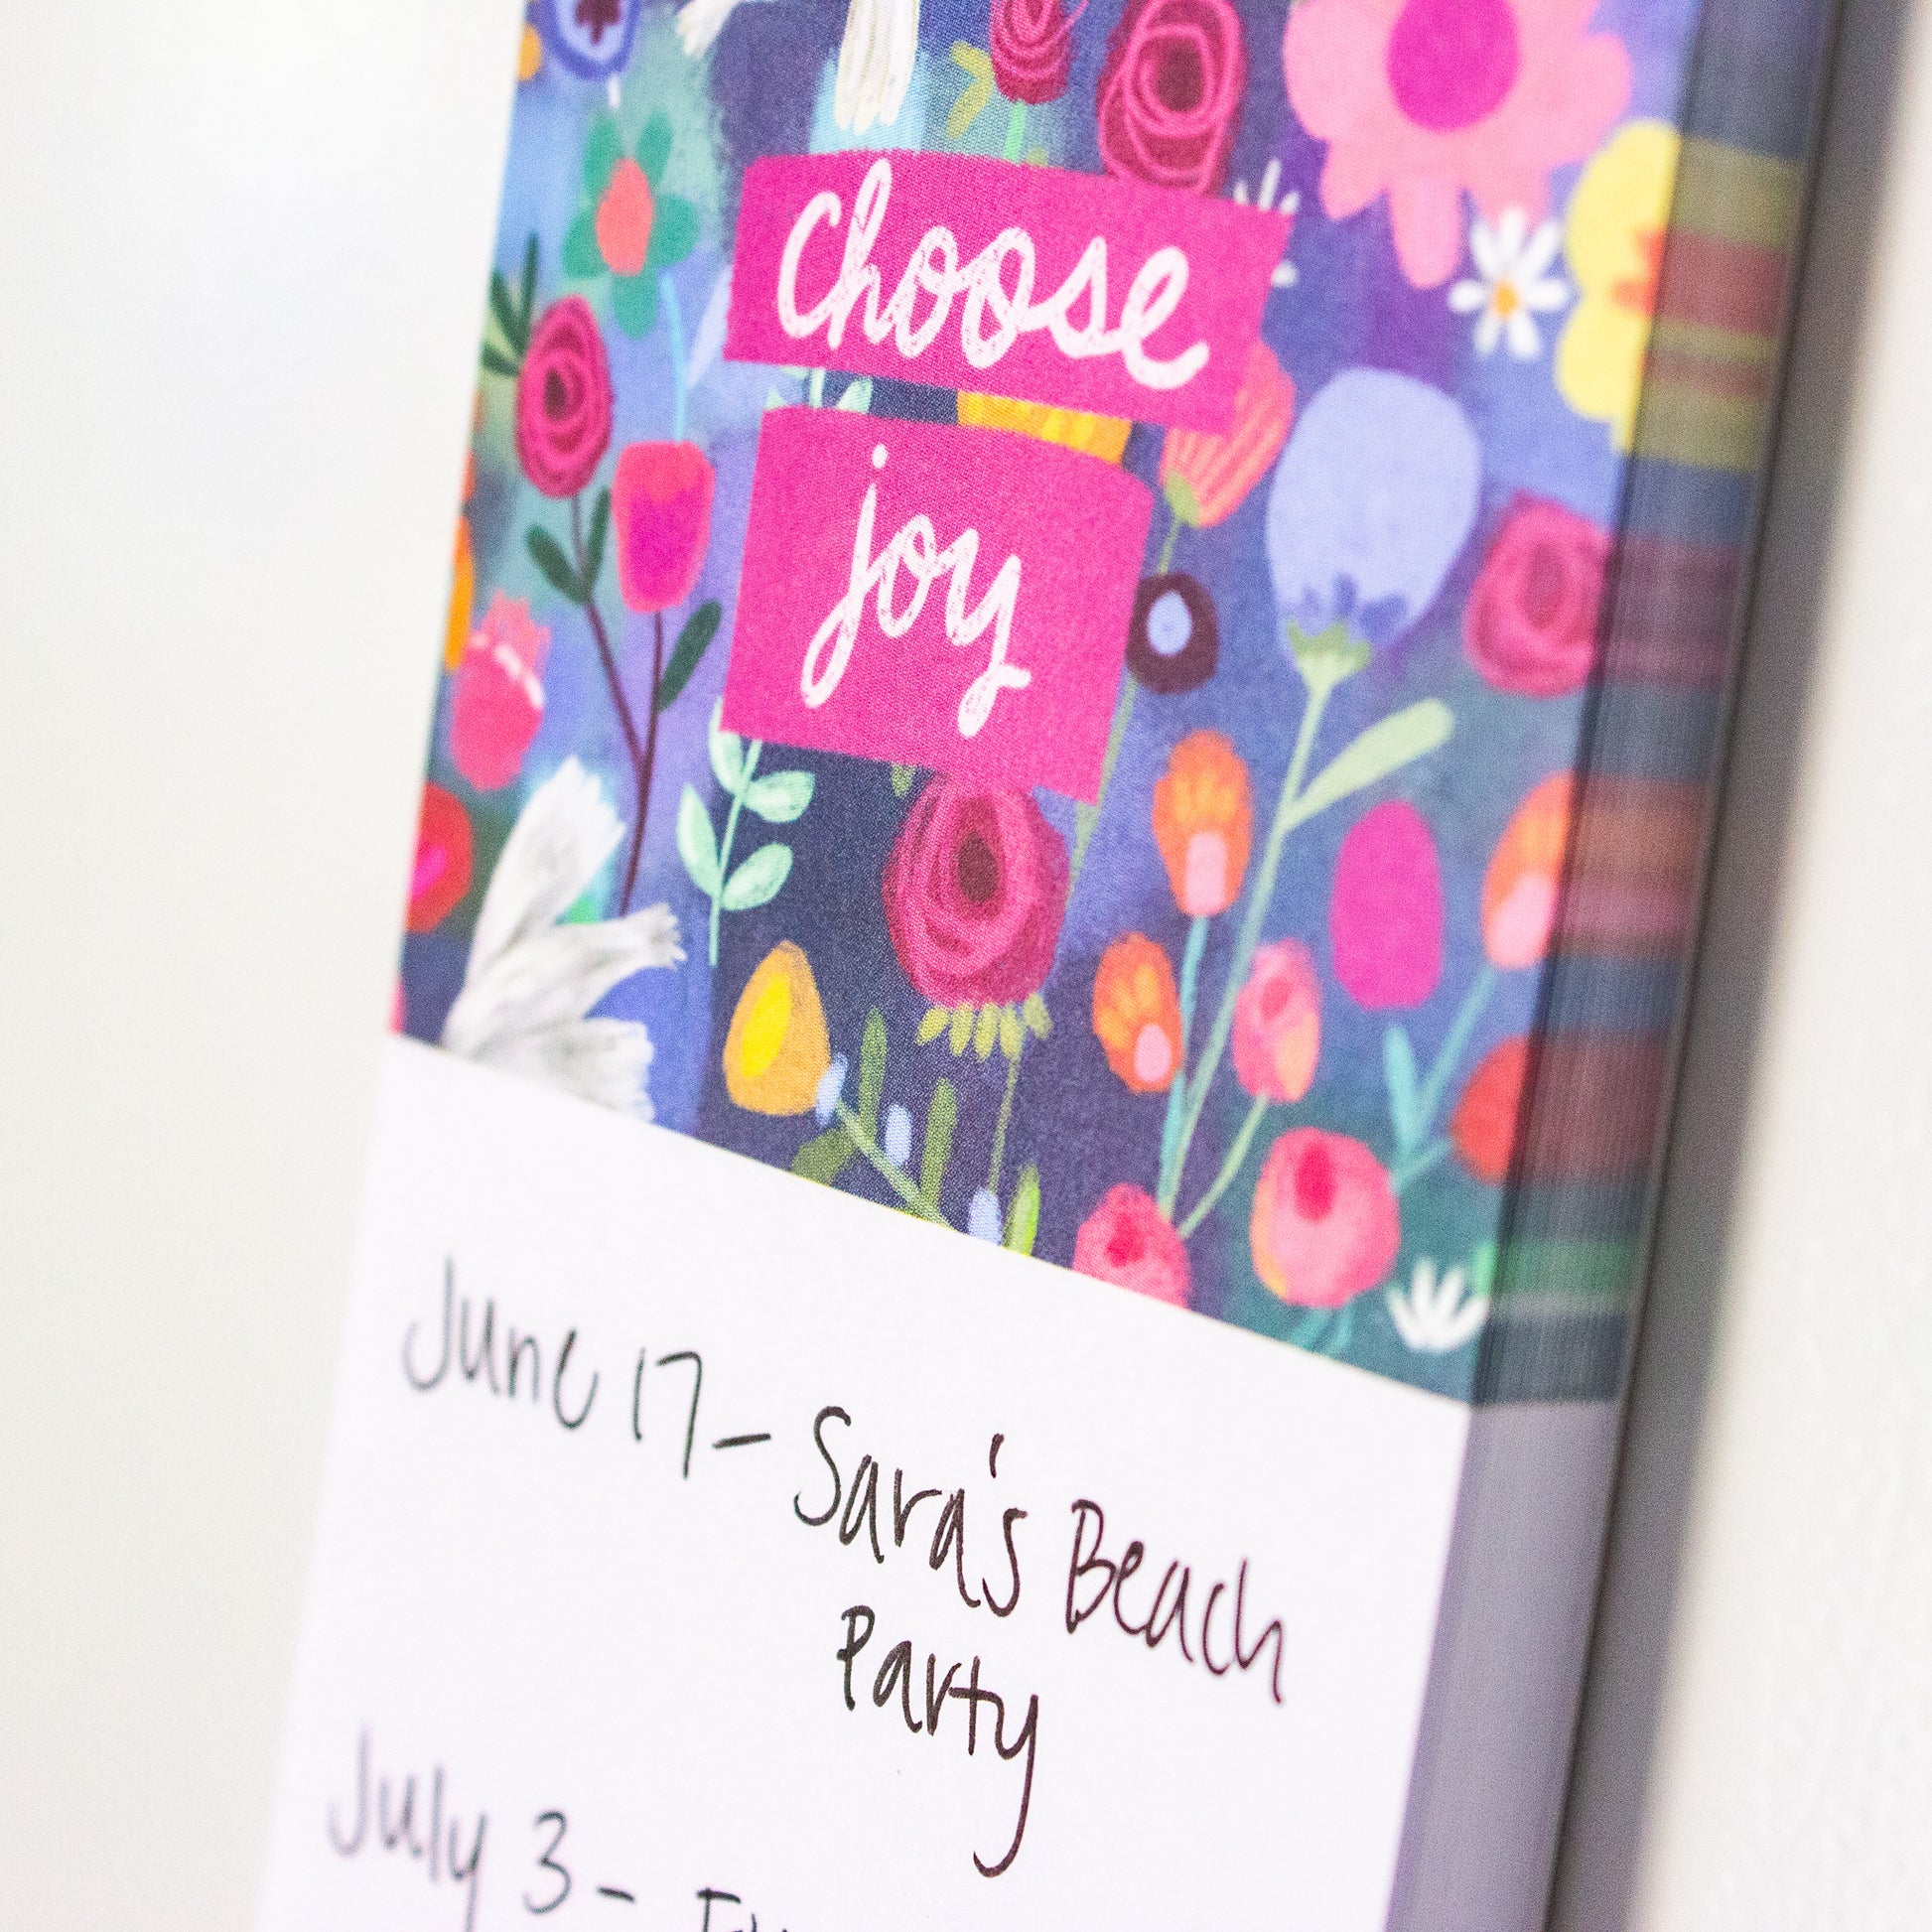 choose
joy
June 17 - Sara's Beach
Party
July 3 -